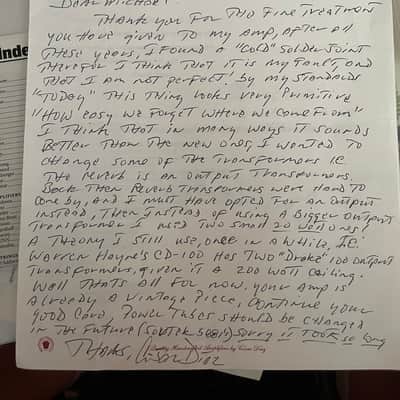 Dear Michael
Thank you for the fine treatment
you have given to my amp, after all
these years, I found a "cold" solder joint
therefor I think that it is my fault, and
that I am not perfect! by my standards
"today" this thing looks very primitive
"How easy we forget where we come from"
I think that in many ways it sounds
better than the new ones, I wanted to
change some of the transformers IE
the reverb is an output transformers.
Back then reverb transformers were hard to
come by, and I must have opted for an output
instead, then instead of using a bigger output
transformer I used two small 20 watt ones,
a theory I still use, once in a while, IE.
Warren Hayne's CD-100 has two "Drake" 100 output
transformers, given it a 200 watt ceiling.
Well thats all for now. your amp is
already a vintage piece, continue your
good care, power tubes should be changed
in the future (Sovtek 5881) sorry it took so long
Thanks, Cesar Diaz
Quality Handcrafted Amplifiers by Cesar Diaz
Inde